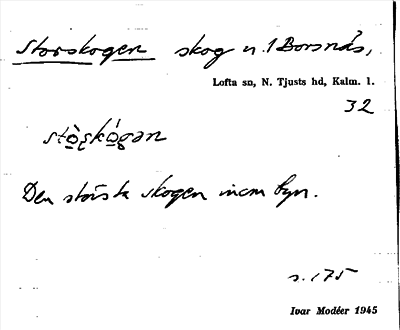 Storskogen skog n. 1 Borsnäs,
Lofta sn, N. Tjusts hd, Kalm. l.
32
Den största skogen inom byn.
s. 175
Ivar Modéer 1945